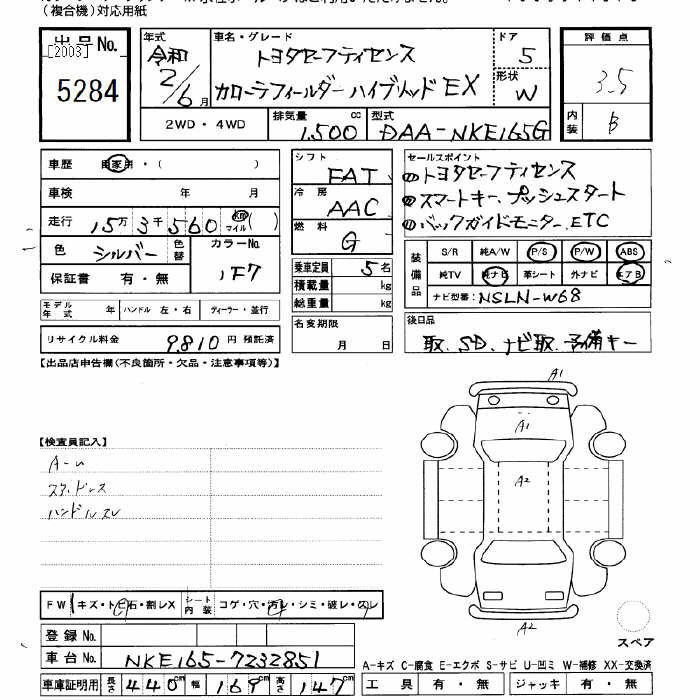 (複合機)対応用紙
出品No. [2003] 5284
年式 令和 2/6月
車名・グレード トヨタセーフティセンス
カローラフィールダーハイブリッドEX
ドア 5
形状 W
評価点 3.5
内装 B
2WD・4WD
排気量 1,500 cc
型式 DAA-NKE165G
車歴 自家用・( )
車検 年 月
走行 15万3千560 km マイル( )
色 シルバー 色替
カラーNo. 1F7
保証書 有・無
モデル年式 年 ハンドル 左・右 ディーラー・並行
リサイクル料金 9,810 円 預託済
シフト FAT
冷房 AAC
燃料 G
乗車定員 5名
積載量 kg
総重量 kg
名変期限 月 日
セールスポイント
トヨタセーフティセンス
スマートキー、プッシュスタート
バックガイドモニター、ETC
装備品 S/R 純A/W P/S P/W ABS
純TV 純ナビ 革シート 外ナビ エアB
ナビ型番: NSLN-W68
後日品
取、SD、ナビ取、予備キー
【出品店申告欄(不良箇所・欠品・注意事項等)】
【検査員記入】
A-U
スタッドレス
ハンドルスレ
A1
A1
A2
A2
スペア
FW キズ・トビ石・割レX シート内装 コゲ・穴・汚レ・シミ・破レ・スレ
登録No.
車台No. NKE165-7232851
車庫証明用 長さ 440cm 幅 169cm 高さ 147cm
A-キズ C-腐食 E-エクボ S-サビ U-凹ミ W-補修 XX-交換済
工具 有・無 ジャッキ 有・無